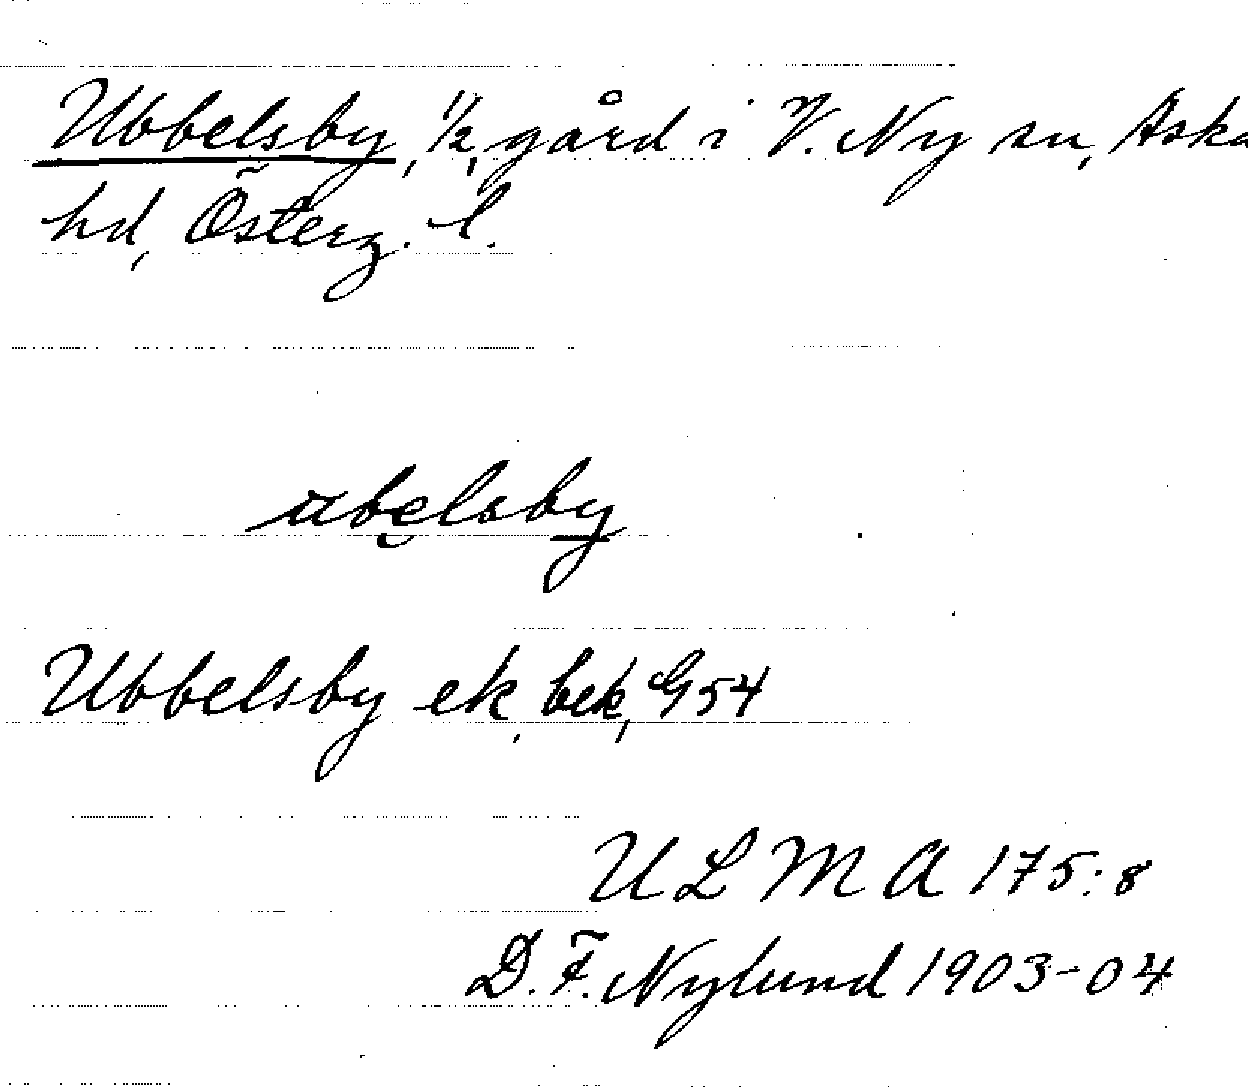 Ubbelsby, 1/2, gård i V. Ny sn, Aska
hd, Österg. l.
ubelsby
Ubbelsby ek, bek, G54
ULMA 175:8
D. F. Nylund 1903-04